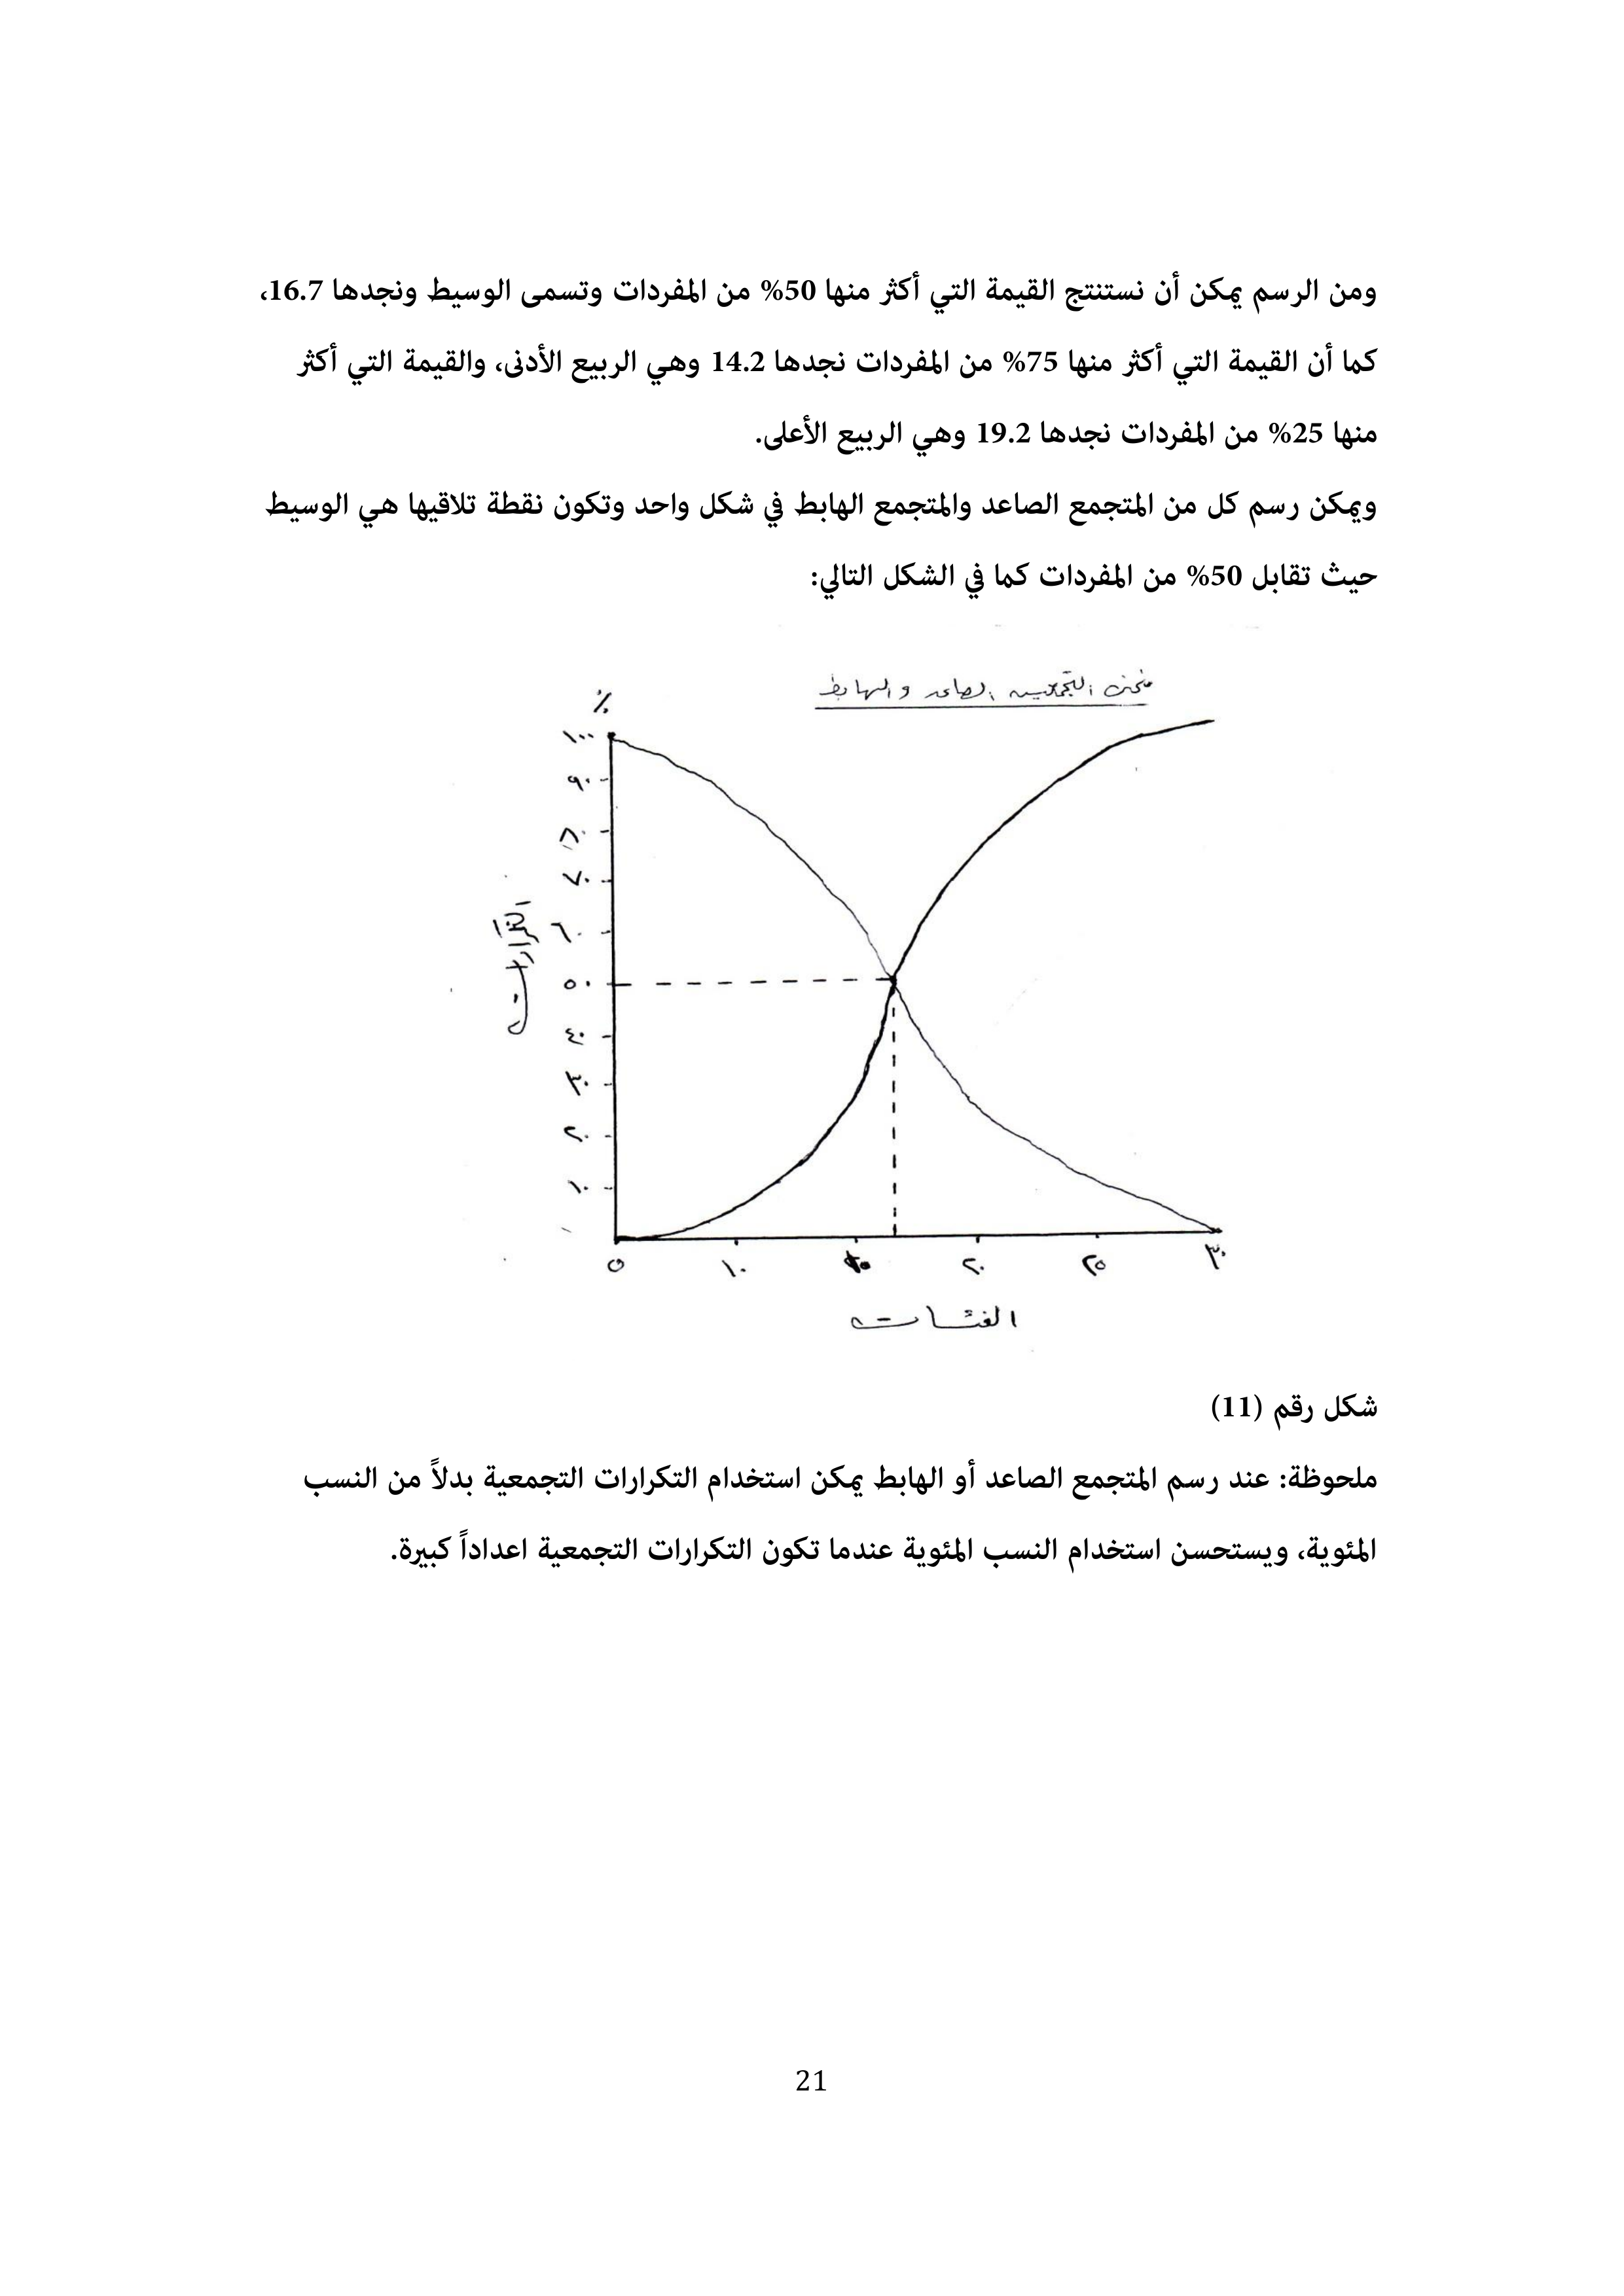 ومن الرسم يمكن أن نستنتج القيمة التي أكثر منها 50% من المفردات وتسمى الوسيط ونجدها 16.7،
كما أن القيمة التي أكثر منها 75% من المفردات نجدها 14.2 وهي الربيع الأدنى، والقيمة التي أكثر
منها 25% من المفردات نجدها 19.2 وهي الربيع الأعلى.
ويمكن رسم كل من المتجمع الصاعد والمتجمع الهابط في شكل واحد وتكون نقطة تلاقيها هي الوسيط
حيث تقابل 50% من المفردات كما في الشكل التالي:
الصاعد والهابط
%
١٠٠
٩٠
٨٠
٧٠
٦٠
٥٠
٤٠
٣٠
٢٠
١٠
التكرارات
٥
١٠
٢٠
٢٥
٣٠
الفئات
شكل رقم (11)
ملحوظة: عند رسم المتجمع الصاعد أو الهابط يمكن استخدام التكرارات التجمعية بدلاً من النسب
المئوية، ويستحسن استخدام النسب المئوية عندما تكون التكرارات التجمعية اعداداً كبيرة.
21